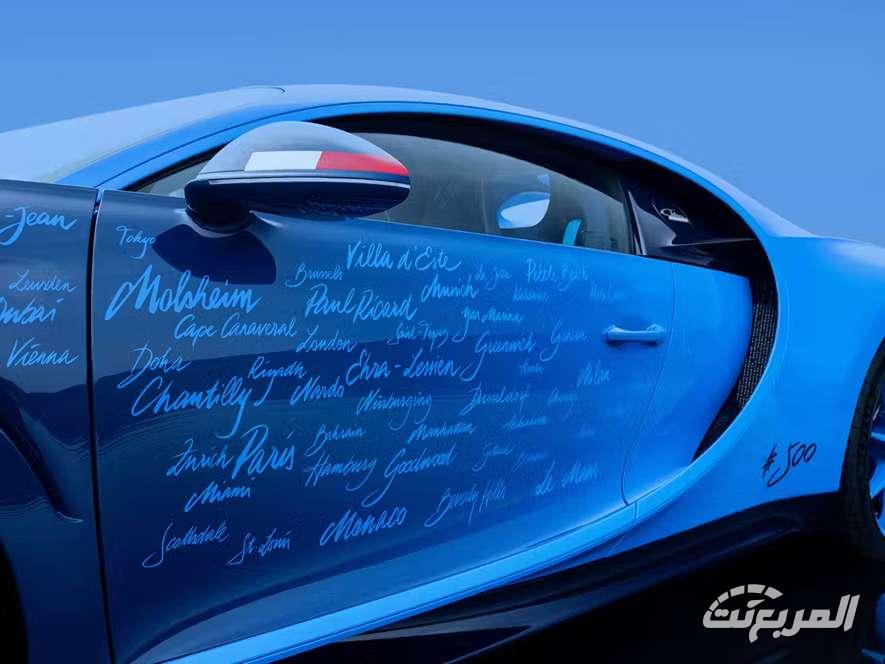 -Jean
Tokyo
Villa d'Este
Brussels
Pebble Beach
Molsheim
Paul Ricard
Munich
Dubai
Cape Canaveral
London
Saint-Tropez
Yas Marina
Vienna
Doha
Riyadh
Ehra-Lessien
Greenwich
Geneva
Chantilly
Nardo
Nürburgring
Dusseldorf
Zurich
Paris
Bahrain
Manhattan
Hamburg
Goodwood
Miami
Beverly Hills
Le Mans
Scottsdale
St. Louis
Monaco
#500
المربع نت